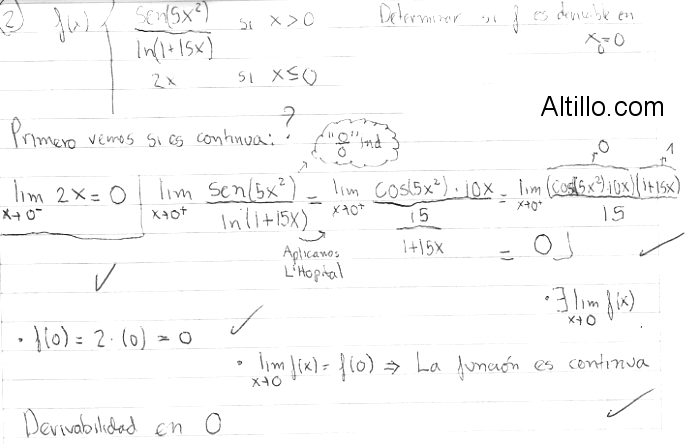 2) f(x) { sen(5x²) / ln(1+15x) si x>0 Determinar si f es derivable en x₀=0
2x si x≤0
Altillo.com
Primero vemos si es continua: ?
"0/0" ind
lim x→0⁻ 2x = 0 | lim x→0⁺ sen(5x²) / ln(1+15x) = lim x→0⁺ cos(5x²)·10x / (15 / (1+15x)) = lim x→0⁺ (cos(5x²)·10x)(1+15x) / 15
0 1
= 0 ✓
Aplicamos
L'Hopital
✓
· ∃ lim x→0 f(x)
· f(0) = 2·(0) = 0 ✓
· lim x→0 f(x) = f(0) ⇒ La función es continua
✓
Derivabilidad en 0